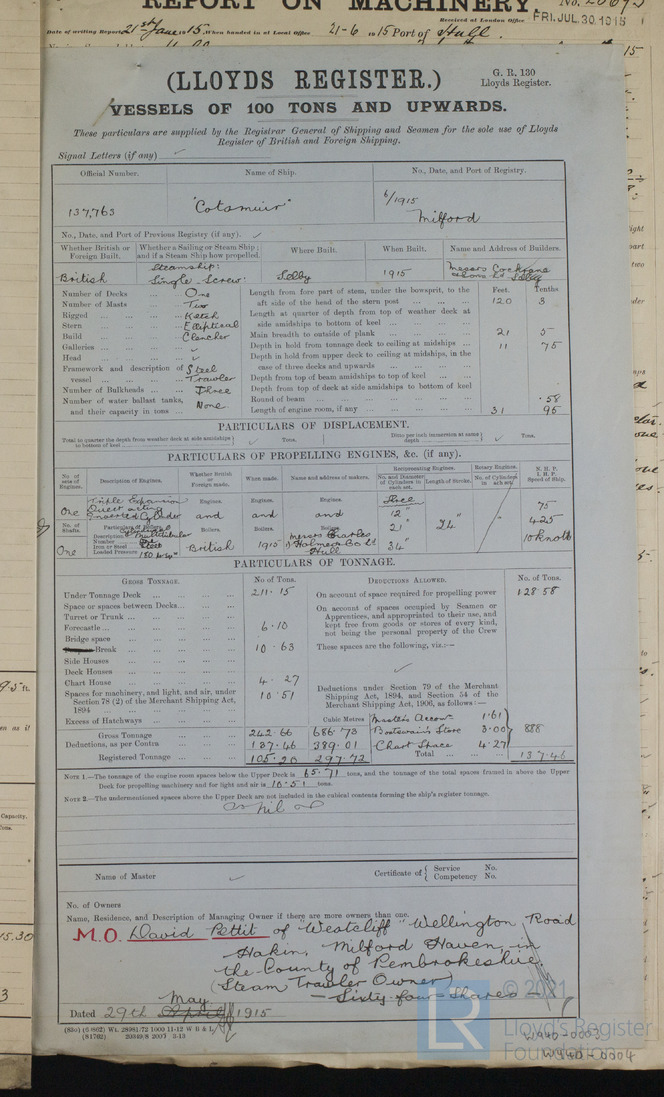 REPORT ON MACHINERY.
Received at London Office FRI. JUL. 30 1915
Date of writing Report 21st June 1915. When handed in at Local Office 21-6 1915 Port of Hull.
(LLOYDS REGISTER.)
G. R. 130
Lloyds Register.
VESSELS OF 100 TONS AND UPWARDS.
These particulars are supplied by the Registrar General of Shipping and Seamen for the sole use of Lloyds
Register of British and Foreign Shipping.
Signal Letters (if any)
Official Number. Name of Ship. No., Date, and Port of Registry.
137,763 "Cotsmuir" 6/1915
Milford
No., Date, and Port of Previous Registry (if any).
Whether British or Foreign Built. Whether a Sailing or Steam Ship; and if a Steam Ship how propelled. Where Built. When Built. Name and Address of Builders.
British Steamship: Single Screw Selby 1915 Messrs Cochrane & Sons Ld Selby
Number of Decks One
Number of Masts Two
Rigged Ketch
Stern Elliptical
Build Clencher
Galleries
Head
Framework and description of vessel Steel Trawler
Number of Bulkheads Three
Number of water ballast tanks, and their capacity in tons None
Feet. Tenths
Length from fore part of stem, under the bowsprit, to the aft side of the head of the stern post 120 3
Length at quarter of depth from top of weather deck at side amidships to bottom of keel
Main breadth to outside of plank 21 5
Depth in hold from tonnage deck to ceiling at midships 11 75
Depth in hold from upper deck to ceiling at midships, in the case of three decks and upwards
Depth from top of beam amidships to top of keel
Depth from top of deck at side amidships to bottom of keel
Round of beam .58
Length of engine room, if any 31 95
PARTICULARS OF DISPLACEMENT.
Total to quarter the depth from weather deck at side amidships to bottom of keel Tons. Ditto per inch immersion at same depth Tons.
PARTICULARS OF PROPELLING ENGINES, &c. (if any).
No. of sets of Engines. Description of Engines. Whether British or Foreign made. When made. Name and address of makers. Reciprocating Engines. Rotary Engines. N. H. P. I. H. P. Speed of Ship.
No. and Diameter of Cylinders in each set. Length of Stroke. No. of Cylinders in each set.
One Triple Expansion Direct acting Inverted Cylinder
Engines. and Engines. and Engines. and
Three 12" 21" 34" 24" 75 425 10 knots
No. of Shafts. Particulars of Boilers Boilers. Boilers. Boilers.
Description Multitubular
Number One
Iron or Steel Steel
Loaded Pressure
One British 1915 Messrs Charles D Holmes & Co Ld Hull
PARTICULARS OF TONNAGE.
GROSS TONNAGE. No of Tons. DEDUCTIONS ALLOWED. No. of Tons.
Under Tonnage Deck 211.15
Space or spaces between Decks
Turret or Trunk
Forecastle 6.10
Bridge space
Break 10.63
Side Houses
Deck Houses
Chart House 4.27
Spaces for machinery, and light, and air, under Section 78 (2) of the Merchant Shipping Act, 1894 10.51
Excess of Hatchways
Cubic Metres
Gross Tonnage 242.66 686.73
Deductions, as per Contra 137.46 389.01
Registered Tonnage 105.20 297.72
On account of space required for propelling power 128.58
On account of spaces occupied by Seamen or Apprentices, and appropriated to their use, and kept free from goods or stores of every kind, not being the personal property of the Crew
These spaces are the following, viz.:—
Deductions under Section 79 of the Merchant Shipping Act, 1894, and Section 54 of the Merchant Shipping Act, 1906, as follows:—
Master's Accom 1.61
Boatswain's Store 3.00
Chart Space 4.27
888
Total 137.46
NOTE 1.—The tonnage of the engine room spaces below the Upper Deck is 65.71 tons, and the tonnage of the total spaces framed in above the Upper
Deck for propelling machinery and for light and air is 10.51 tons.
NOTE 2.—The undermentioned spaces above the Upper Deck are not included in the cubical contents forming the ship's register tonnage.
nil
Name of Master Certificate of { Service No. Competency No.
No. of Owners
Name, Residence, and Description of Managing Owner if there are more owners than one.
M.O. David Pettit of "Westcliff" Wellington Road
Hakin, Milford Haven, in
the County of Pembrokeshire.
(Steam Trawler Owner)
— Sixty four Shares
Dated 29th May April 1915
(830) (6802) Wt. 28981/72 1000 11-12 W B & L
(81762) 29349/8 2000 3-13
© 2021
LR
Lloyd's Register
Foundation
W940-0003
W940-0004